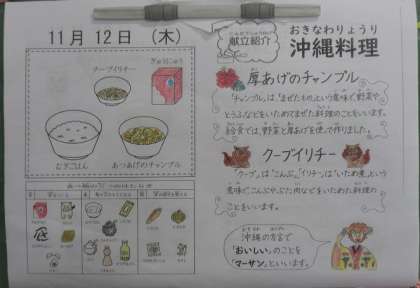 11月 12日 (木)
クーブイリチー
ぎゅうにゅう
むぎごはん
あつあげのチャンプル
献立紹介
おきなわりょうり
沖縄料理
厚あげのチャンプル
「チャンプル」は、「まぜたもの」という意味で、野菜や
とうふなどをいためてまぜた料理のことをいいます。
給食では、野菜と厚あげを使って作りました。
クーブイリチー
「クーブ」は「こんぶ」、「イリチー」は「いため煮」という
意味で、こんぶやぶた肉などをいためた料理の
ことをいいます。
沖縄の方言で
「おいしい」のことを
「マーサン」といいます。